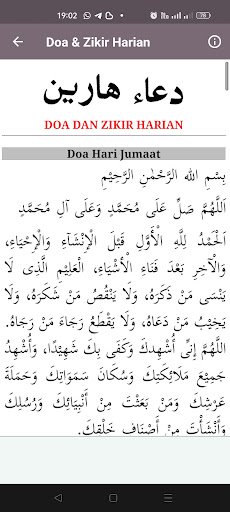 19:02
Doa & Zikir Harian
دعاء هارين
DOA DAN ZIKIR HARIAN
Doa Hari Jumaat
بِسْمِ اللهِ الرَّحْمٰنِ الرَّحِيْمِ
اَللّٰهُمَّ صَلِّ عَلَى مُحَمَّدٍ وَعَلَى آلِ مُحَمَّدٍ
اَلْحَمْدُ لِلّٰهِ الْأَوَّلِ قَبْلَ الْإِنْشَآءِ وَالْإِحْيَاءِ،
وَالْآخِرِ بَعْدَ فَنَاءِ الْأَشْيَاءِ، الْعَلِيْمِ الَّذِى لَا
يَنْسَى مَنْ ذَكَرَهُ، وَلَا يَنْقُصُ مَنْ شَكَرَهُ، وَلَا
يَخِيْبُ مَنْ دَعَاهُ، وَلَا يَقْطَعُ رَجَاءَ مَنْ رَجَاهُ.
اَللّٰهُمَّ إِنِّى أُشْهِدُكَ وَكَفَى بِكَ شَهِيْدًا، وَأُشْهِدُ
جَمِيْعَ مَلَائِكَتِكَ وَسُكَّانَ سَمَوَاتِكَ وَحَمَلَةَ
عَرْشِكَ وَمَنْ بَعَثْتَ مِنْ أَنْبِيَائِكَ وَرُسُلِكَ
وَأَنْشَأْتَ مِنْ أَصْنَافِ خَلْقِكَ.